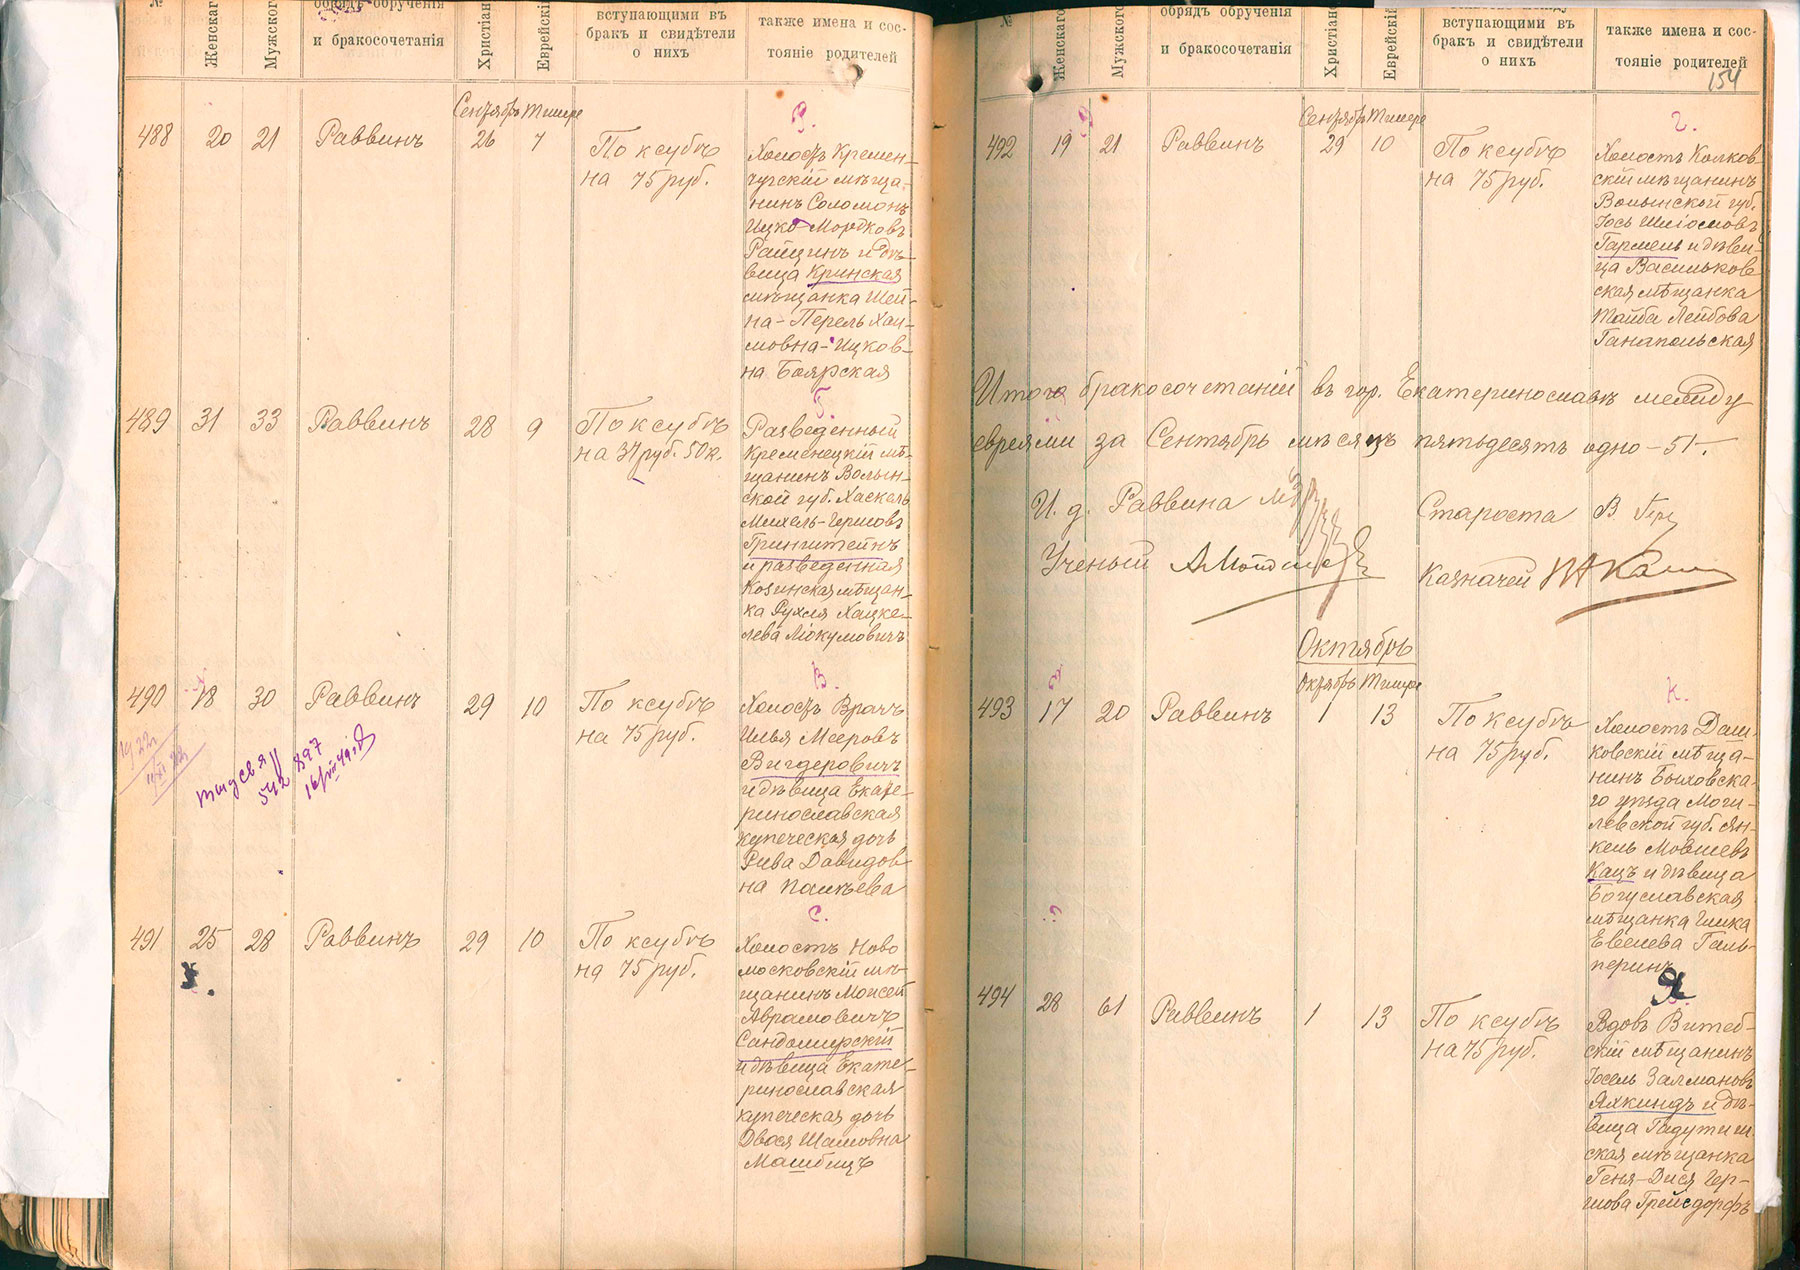 №
Женскаго
Мужского
обрядъ обрученія
и бракосочетанія
Христіанс
Еврейскій
вступающими въ
бракъ и свидѣтели
о нихъ
также имена и сос-
тояніе родителей
Сентябрь Тишре
488 20 21 Раввинъ 26 7
По ксубѣ
на 75 руб.
Р.
Холостъ Кремен-
чугскій мѣща-
нинъ Соломонъ
Ицко-Мордковъ
Райцинъ и дѣ-
вица Кринская
мѣщанка Шей-
на-Перель Хаи-
мовна-Ицков-
на Боярская
489 31 33 Раввинъ 28 9
По ксубѣ
на 37 руб. 50 к.
Г.
Разведенный
Кременецкій мѣ-
щанинъ Волын-
ской губ. Хаскель
Михель-Гершовъ
Гринштейнъ
и разведенная
Козинская мѣщан-
ка Рухля Хацке-
лева Мокумовичъ
490 18 30 Раввинъ 29 10
По ксубѣ
на 75 руб.
В.
Холостъ Врачъ
Илья Мееровъ
Вигдоровичъ
и дѣвица Екате-
ринославская
купеческая дочь
Рива Давидов-
на
1922
542 897
491 25 28 Раввинъ 29 10
По ксубѣ
на 75 руб.
С.
Холостъ Ново
московскій мѣ-
щанинъ Моисей
Абрамовичъ
Сандомирскій
и дѣвица Екате-
ринославская
купеческая дочь
Двося
Машбицъ
№
Женскаго
Мужского
обрядъ обрученія
и бракосочетанія
Христіанс
Еврейскій
вступающими въ
бракъ и свидѣтели
о нихъ
также имена и сос-
тояніе родителей
154
Сентябрь Тишре
492 19 21 Раввинъ 29 10
По ксубѣ
на 75 руб.
Г.
Холостъ Колков-
скій мѣщанинъ
Волынской губ.
Іось Шліомовъ
Гармель и дѣви-
ца Васильков
ская мѣщанка
Тайба Лейбова
Ганапольская
Итого бракосочетаній въ гор. Екатеринославѣ между
евреями за Сентябрь мѣсяцъ пятьдесятъ одно - 51 -
И. д. Раввина
Староста В
Ученый
Казначей
Октябрь
Октябрь Тишре
493 17 20 Раввинъ 1 13
По ксубѣ
на 75 руб.
К.
Холостъ Даш-
ковскій мѣща-
нинъ Быховска-
го уѣзда Моги-
левской губ. Ян-
кель Мовшевъ
Кацъ и дѣвица
Богуславская
мѣщанка
Евелева Галь-
перинъ
494 28 61 Раввинъ 1 13
По ксубѣ
на 75 руб.
Я
Вдовъ Витеб-
скій мѣщанинъ
Іосель Залмановъ
Яхкиндъ и дѣ-
вица Гадутиш-
ская мѣщанка
Геня-Дися Гер-
шова Грейсдорфъ